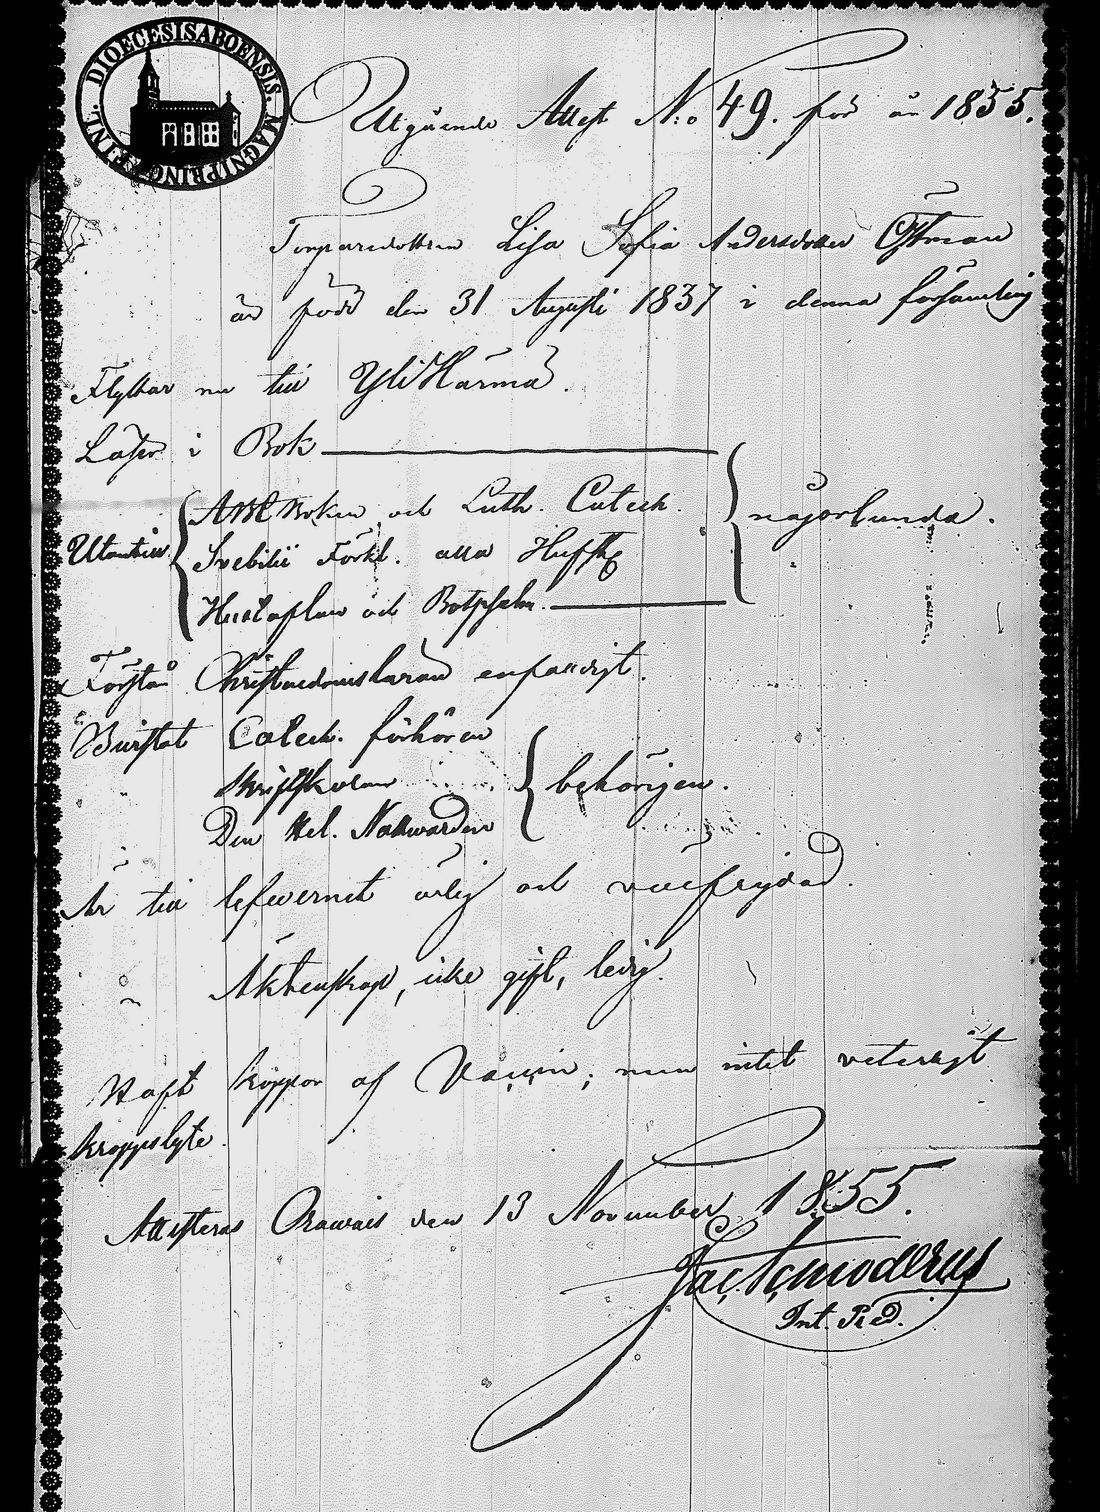 DIOECESIS ABOENSIS. MAGNI PRINC. FINL.
Utgående Attest N:o 49. för år 1855.
Torparedottren Lisa Sofia Andersdotter Östman
är född den 31 Augusti 1837 i denna församling
Flyttar nu till Ylihärmä.
Läser i Bok
Utantill
ABC Boken och Luth. Catech.
Svebilii Förkl. alla Hufst
Hustaflan och Botpsalm.
någorlunda.
Förstår Christendomsläran enfaldigt.
Bivistat Catech. förhören
Skriftskolan
Den Hel. Nattvarden
behörigen.
Är till lefvernet ärlig och välfrejdad.
" " Äktenskap, icke gift, ledig.
Haft koppor af Vaccin; men intet veterligt
kroppslyte.
Attesteras Orawais den 13 November 1855.
Jac.